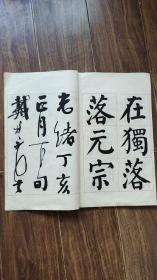 在獨落
落元宗
光緒丁亥
正月下旬